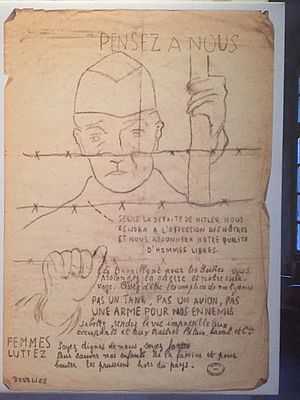 PENSEZ A NOUS
SEULE LA DÉFAITE DE HITLER NOUS
RENDRA A L'AFFECTION DES NÔTRES
ET NOUS REDONNERA NOTRE QUALITÉ
D'HOMMES LIBRES.
En travaillant pour les Boches vous
prolongez la guerre et notre escla-
vage. Cessez d'être les complices de nos tyrans
PAS UN TANK, PAS UN AVION, PAS
UNE ARME POUR NOS ENNEMIS
Sabotez, rendez la vie impossible aux
occupants et aux traîtres Pétain, Laval et Cie
FEMMES
LUTTEZ
Soyez dignes de nous, soyez fortes
Pour sauver nos enfants de la famine et pour
bouter les prussiens hors du pays.